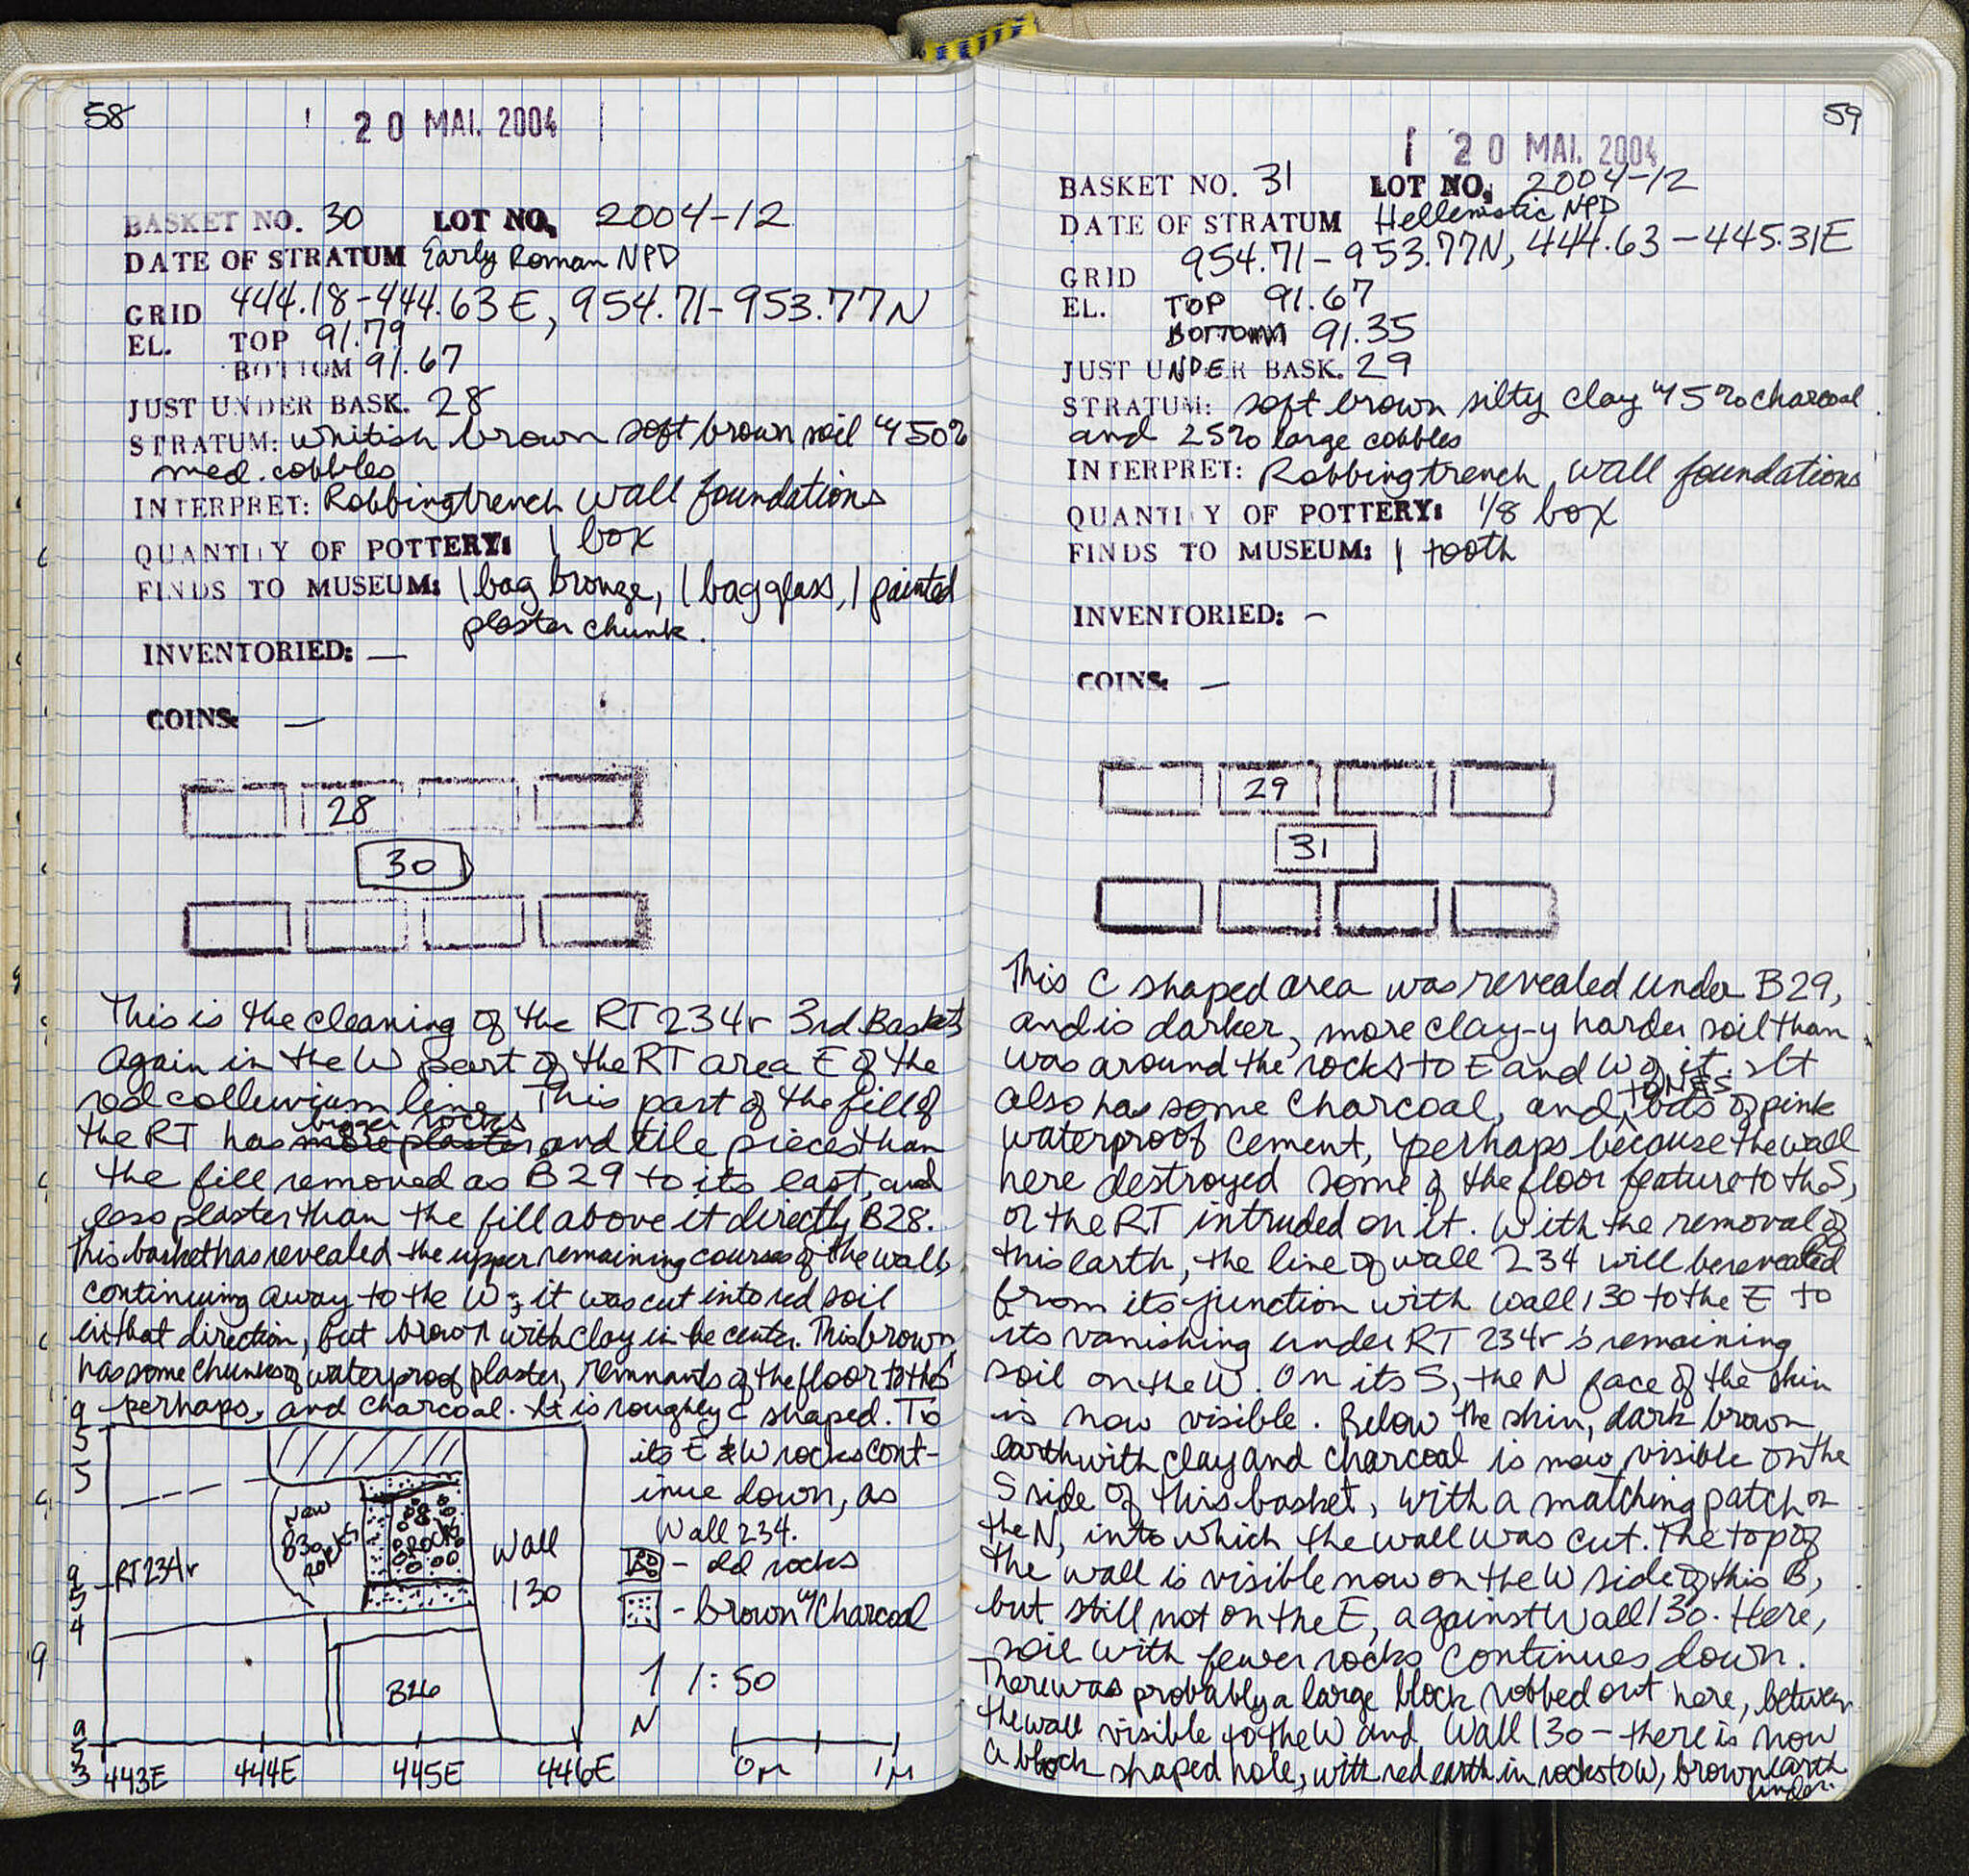 58
20 MAI. 2004
BASKET NO. 30 LOT NO. 2004-12
DATE OF STRATUM Early Roman NPD
GRID 444.18-444.63E, 954.71-953.77N
EL. TOP 91.79
BOTTOM 91.67
JUST UNDER BASK. 28
STRATUM: whitish brown soft brown soil w/ 50%
med. cobbles
INTERPRET: Robbing trench wall foundations
QUANTITY OF POTTERY: 1 box
FINDS TO MUSEUM: 1 bag bronze, 1 bag glass, 1 painted
plaster chunk.
INVENTORIED: —
COINS: —
28
30
This is the cleaning of the RT 234r 3rd Basket
again in the W part of the RT area E of the
red colluvium line. This part of the fill of
bigger rocks
the RT has more plaster and tile pieces than
the fill removed as B29 to its east, and
less plaster than the fill above it directly B28.
This basket has revealed the upper remaining courses of the wall,
continuing away to the W; it was cut into red soil
in that direction, but brown with clay in the center. This brown
has some chunks of waterproof plaster, remnants of the floor to the S
perhaps, and charcoal. It is roughly C shaped. To
its E & W rocks cont-
inue down, as
Wall 234.
- old rocks
- brown w/ charcoal
1:50
N
0m 1m
955
New
B30
rocks
ROCKS
Wall
130
RT234r
954
B26
953
443E 444E 445E 446E
59
20 MAI. 2004
BASKET NO. 31 LOT NO. 2004-12
DATE OF STRATUM Hellenistic NPD
GRID 954.71-953.77N, 444.63-445.31E
EL. TOP 91.67
BOTTOM 91.35
JUST UNDER BASK. 29
STRATUM: soft brown silty clay w/ 5% charcoal
and 25% large cobbles
INTERPRET: Robbing trench, wall foundations
QUANTITY OF POTTERY: 1/8 box
FINDS TO MUSEUM: 1 tooth
INVENTORIED: —
COINS: —
29
31
This C shaped area was revealed under B29,
and is darker, more clay-y harder soil than
was around the rocks to E and W of it. It
also has some charcoal, and bits of pink
waterproof cement, perhaps because the wall
here destroyed some of the floor feature to the S,
or the RT intruded on it. With the removal of
this earth, the line of wall 234 will be revealed
from its junction with wall 130 to the E to
its vanishing under RT 234r's remaining
soil on the W. On its S, the N face of the skin
is now visible. Below the skin, dark brown
earth with clay and charcoal is now visible on the
S side of this basket, with a matching patch on
the N, into which the wall was cut. The top of
the wall is visible now on the W side of this B,
but still not on the E, against Wall 130. Here,
soil with fewer rocks continues down.
There was probably a large block robbed out here, between
the wall visible to the W and Wall 130 - there is now
a block shaped hole, with red earth in rocks to W, brown earth
under.